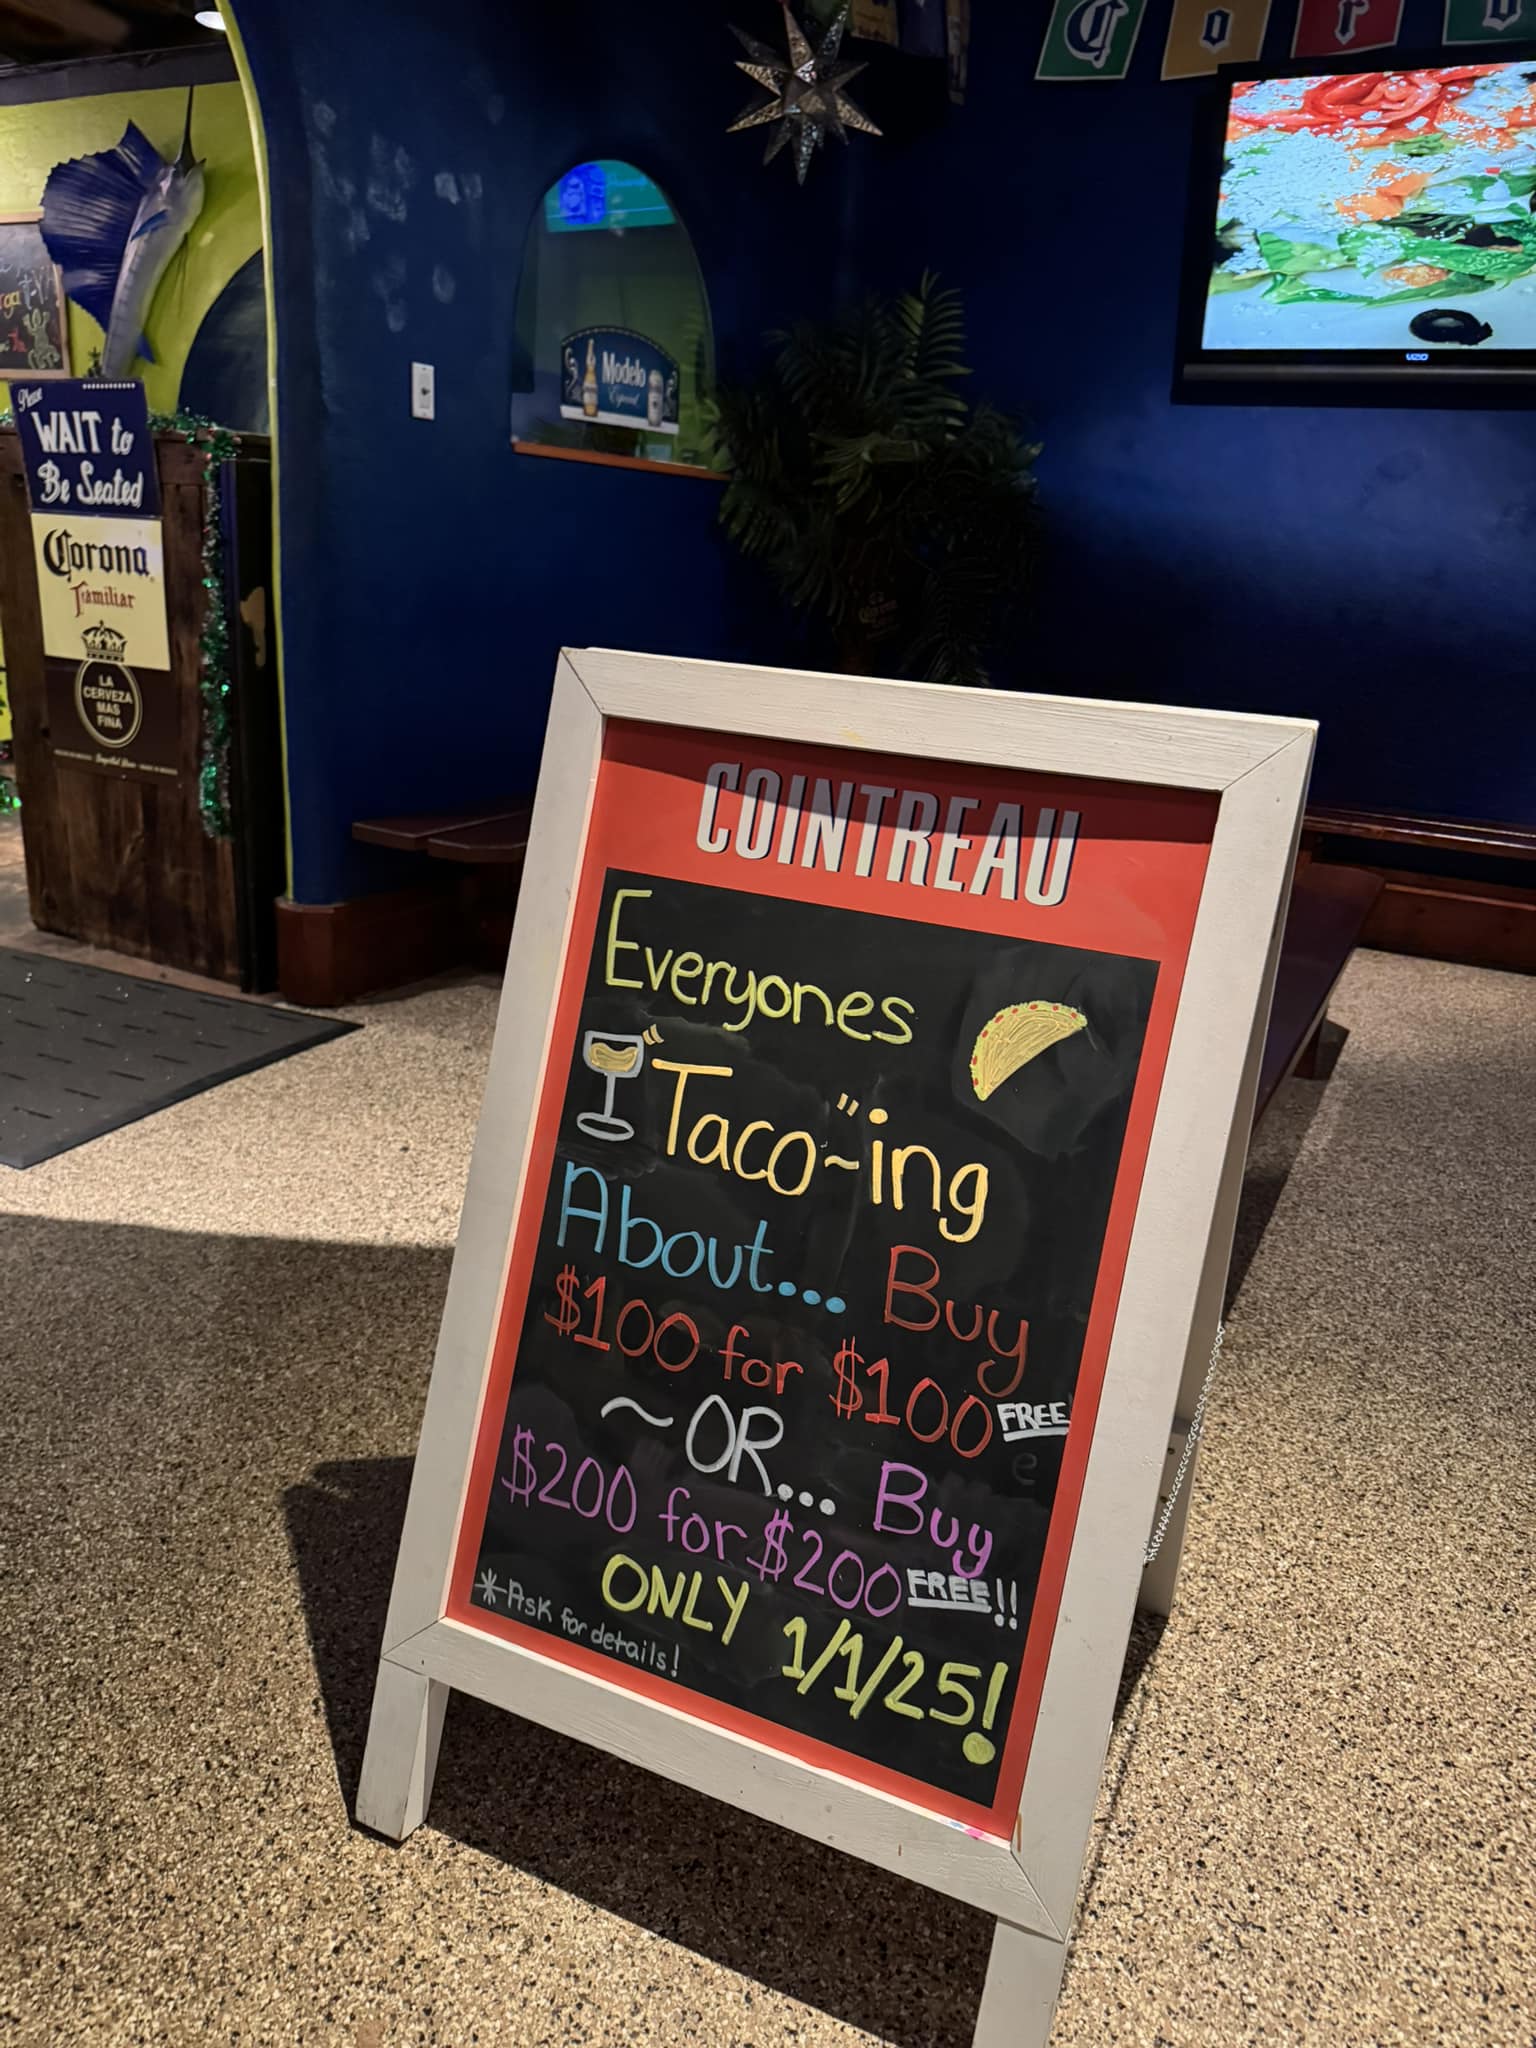 C o r o
Modelo
Especial
VIZIO
Please
WAIT to
Be Seated
Corona
Familiar
LA
CERVEZA
MAS
FINA
COINTREAU
Everyones
"Taco~"ing
About... Buy
$100 for $100 FREE
~OR... Buy
$200 for $200 FREE!!
ONLY 1/1/25!
*Ask for details!